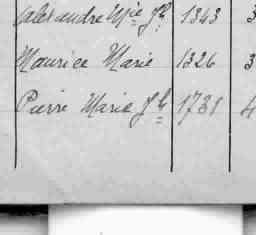 Alexandre Mie Jh 1343 3
Maurice Marie 1326 3
Pierre Marie Jh 1731 4